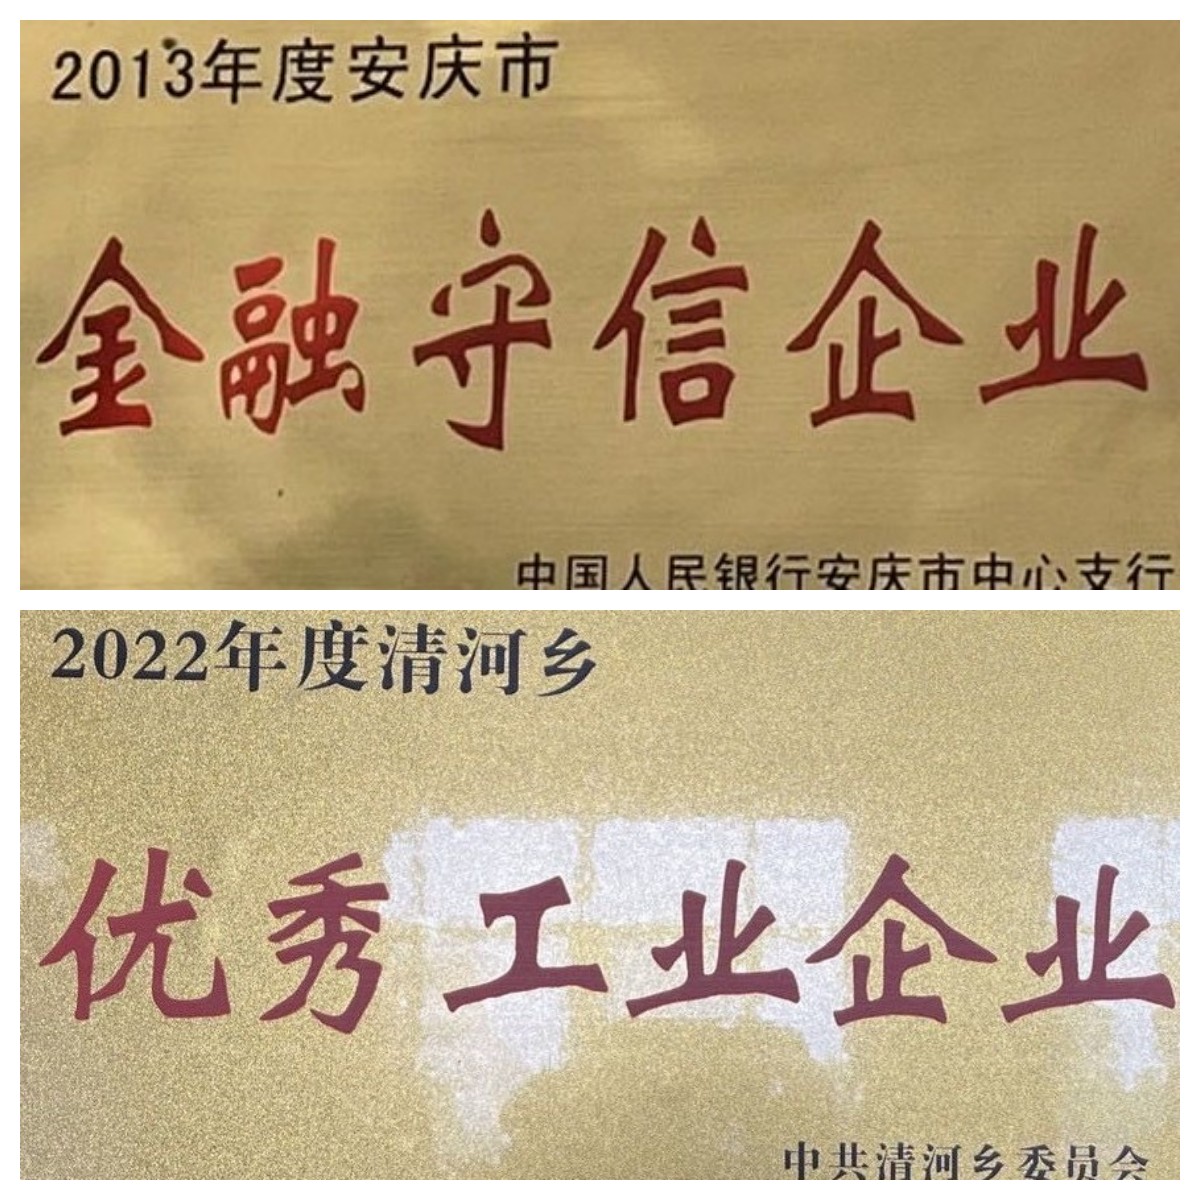 2013年度安庆市
金融守信企业
中国人民银行安庆市中心支行
2022年度清河乡
优秀工业企业
中共清河乡委员会